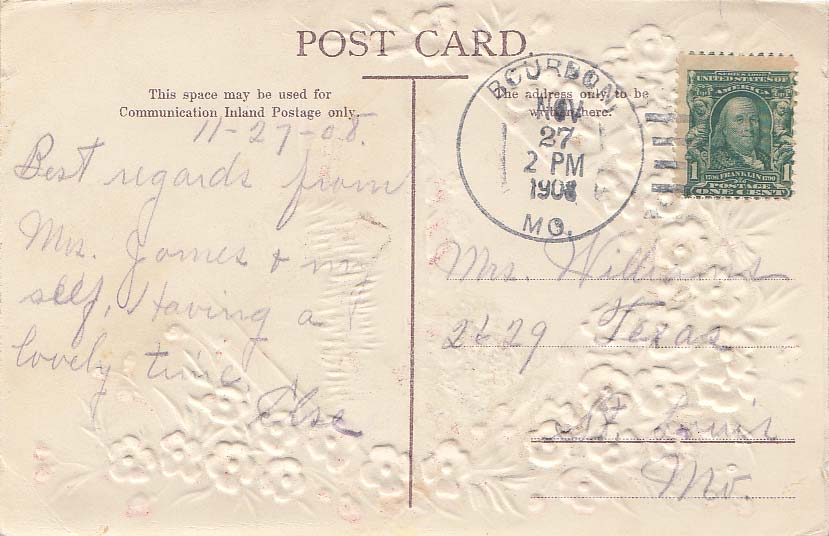 POST CARD.
This space may be used for
Communication Inland Postage only.
11-27-08.
Best regards from
Mrs. James & my
self. Having a
lovely time.
Else
The address only to be
written here.
BOURBON
NOV
27
2 PM
1908
MO.
SERIES 1902
UNITED STATES OF
AMERICA
1706 FRANKLIN 1790
1 1
POSTAGE
ONE CENT
Mrs. Williams
Texas
St. Louis
Mo.